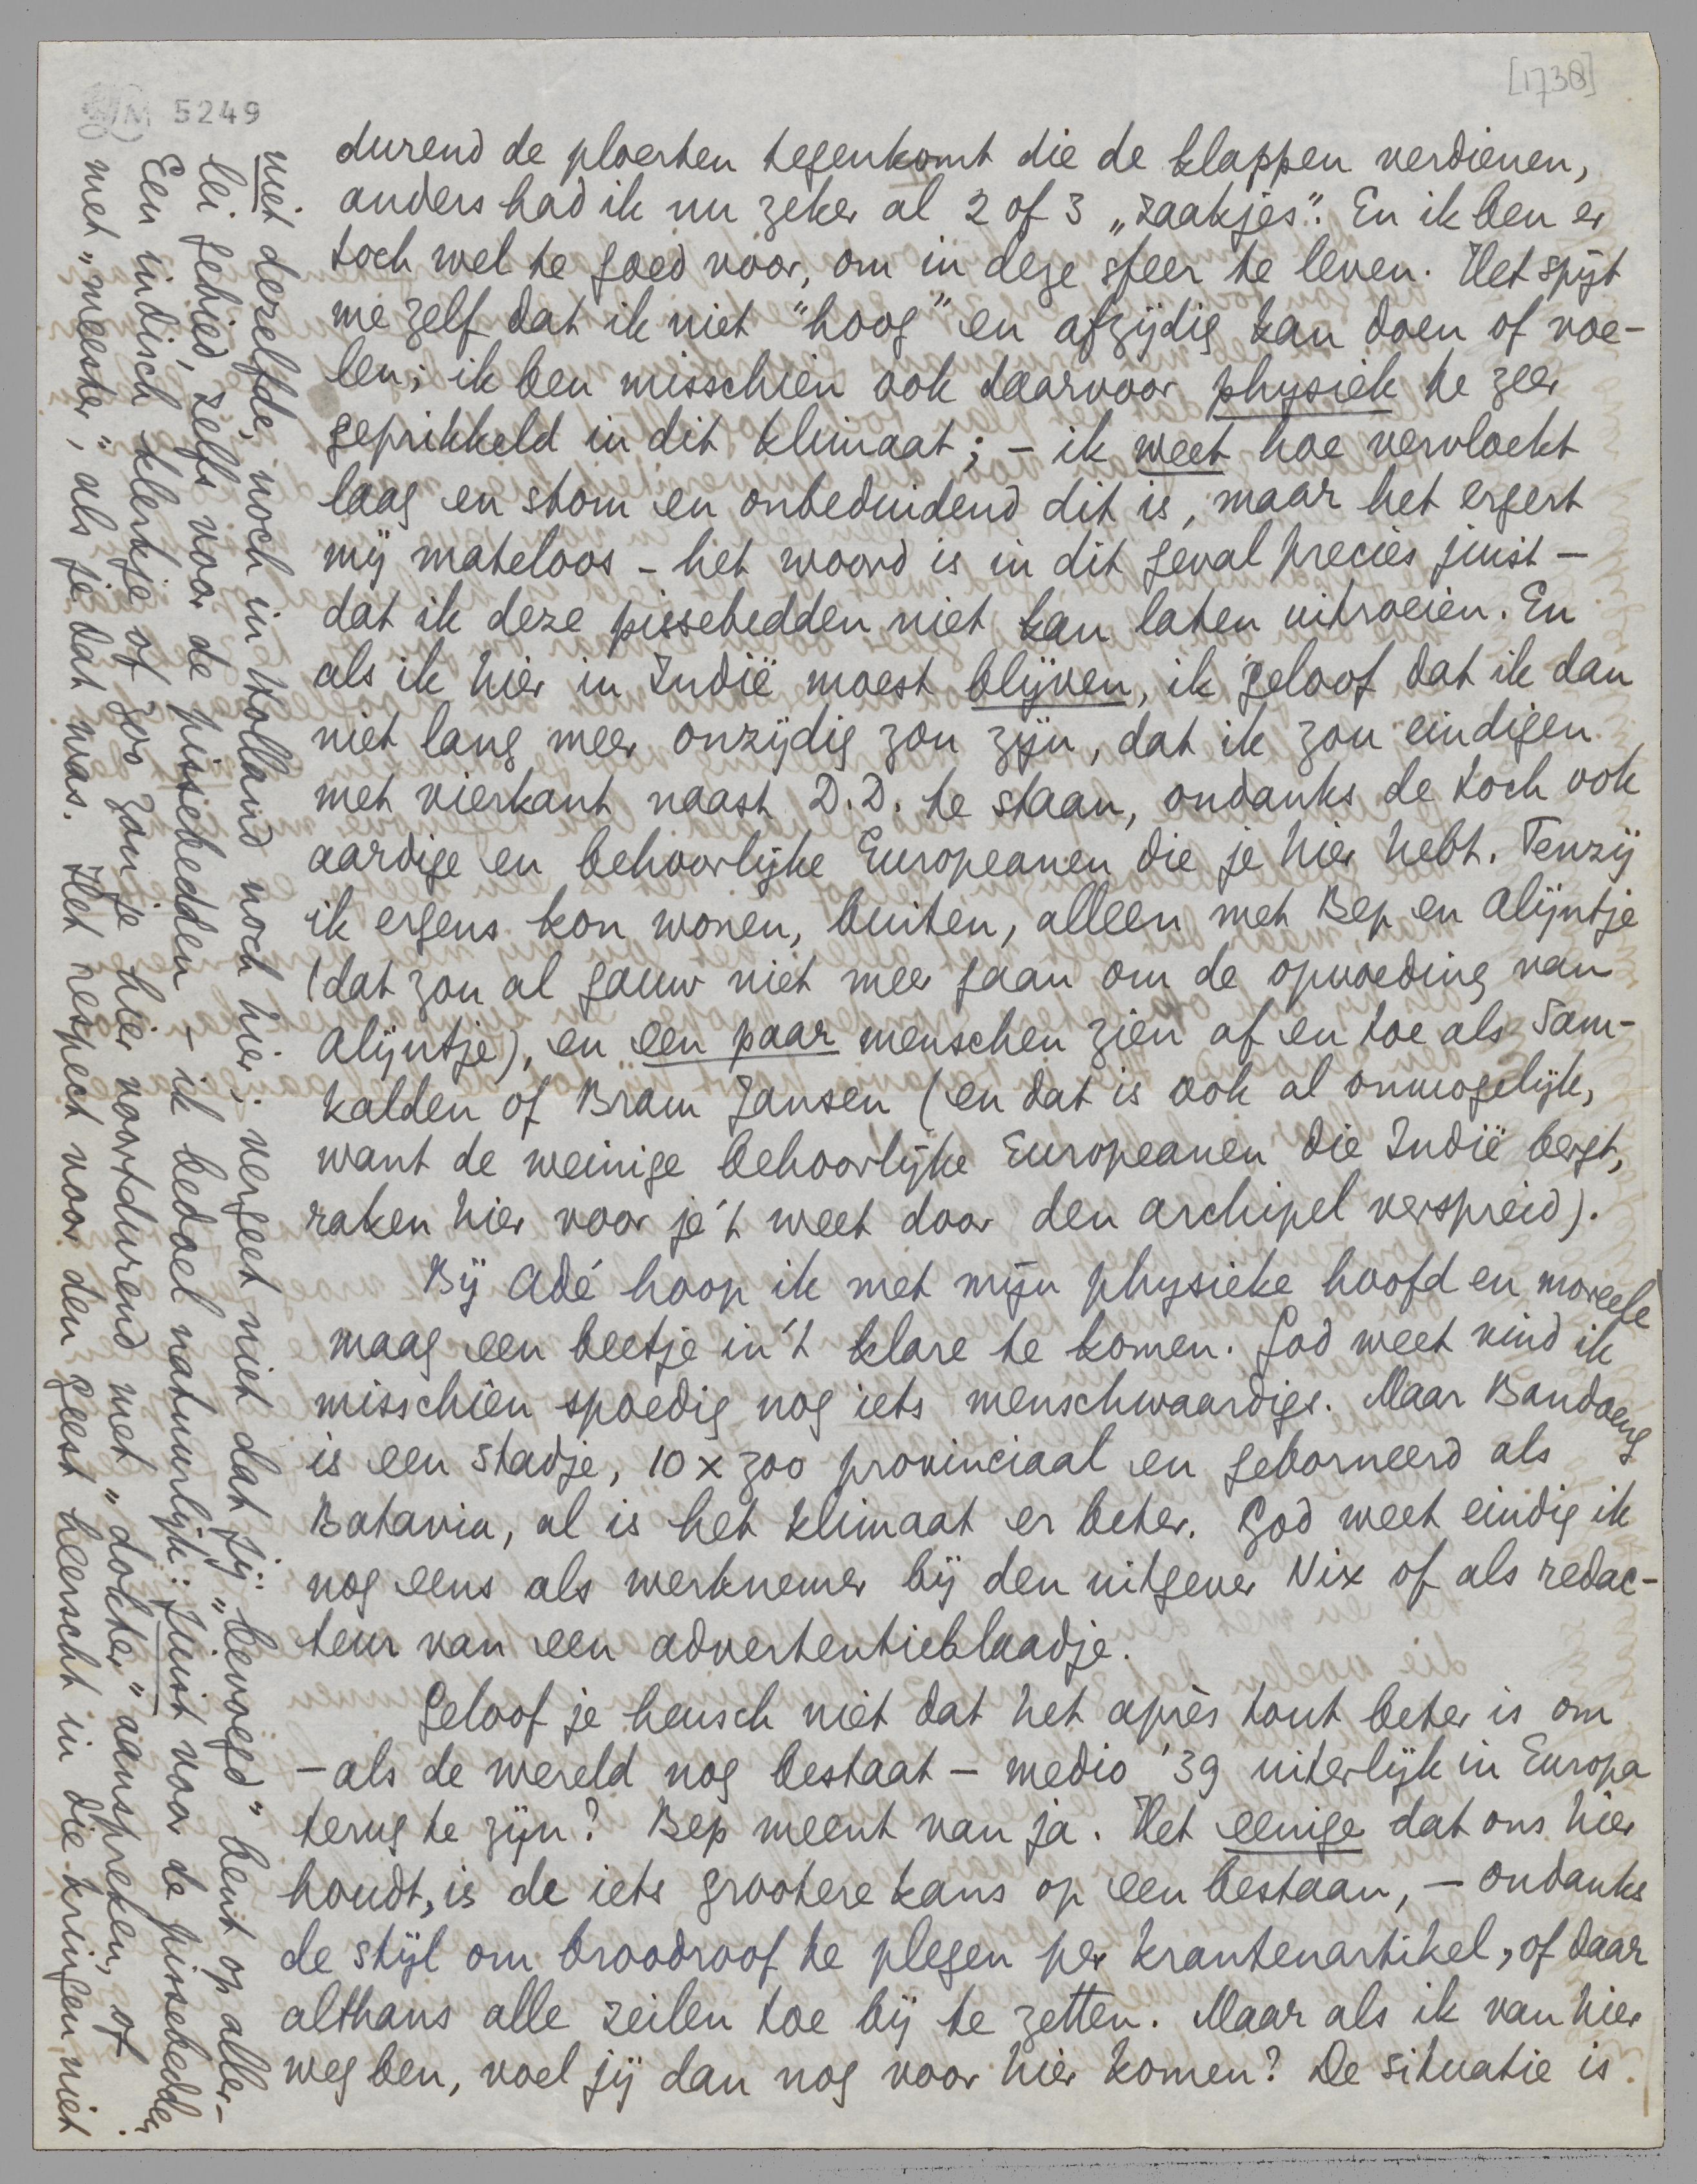 [1738]
LM 5249
durend de ploerten tegenkomt die de klappen verdienen,
anders had ik nu zeker al 2 of 3 „zaakjes". En ik ben er
toch wel te goed voor, om in deze sfeer te leven. Het spijt
me zelf dat ik niet "hoog" en afzijdig kan doen of voe-
len; ik ben misschien ook daarvoor physiek te zeer
geprikkeld in dit klimaat; - ik weet hoe vervloekt
laag en stom en onbeduidend dit is, maar het ergert
mij mateloos - het woord is in dit geval precies juist -
dat ik deze pissebedden niet kan laten uitroeien. En
als ik hier in Indië moest blijven, ik geloof dat ik dan
niet lang meer onzijdig zou zijn, dat ik zou eindigen
met vierkant naast D.D. te staan, ondanks de toch ook
aardige en behoorlijke Europeanen die je hier hebt. Tenzij
ik ergens kon wonen, buiten, alleen met Bep en Alijntje
(dat zou al gauw niet meer gaan om de opvoeding van
Alijntje), en een paar menschen zien af en toe als Sam-
kalden of Bram Jansen (en dat is ook al onmogelijk,
want de weinige behoorlijke Europeanen die Indië bergt,
raken hier voor je 't weet door den archipel verspreid).
Bij Adé hoop ik met mijn physieke hoofd en moreele
maag een beetje in 't klare te komen. God weet vind ik
misschien spoedig nog iets menschwaardigs. Maar Bandoeng
is een stadje, 10 x zoo provinciaal en geborneerd als
Batavia, al is het klimaat er beter. God weet eindig ik
nog eens als werknemer bij den uitgever Nix of als redac-
teur van een advertentieblaadje.
Geloof je heusch niet dat het après tout beter is om
- als de wereld nog bestaat - medio '39 uiterlijk in Europa
terug te zijn? Bep meent van ja. Het eenige dat ons hier
houdt, is de iets grootere kans op een bestaan, - ondanks
de stijl om broodroof te plegen per krantenartikel, of daar
althans alle zeilen toe bij te zetten. Maar als ik van hier
weg ben, voel jij dan nog voor hier komen? De situatie is
niet dezelfde, noch in Holland noch hier; vergeet niet dat jij „bevoegd" bent op aller-
lei gebied, zelfs voor de pissebedden - ik bedoel natuurlijk: juist voor de pissebedden.
Een indisch klerkje of zoo zou je hier voortdurend met "dokter" aanspreken, of
met „meester", als je dat was. Het respect voor den geest heerscht in die kringen niet